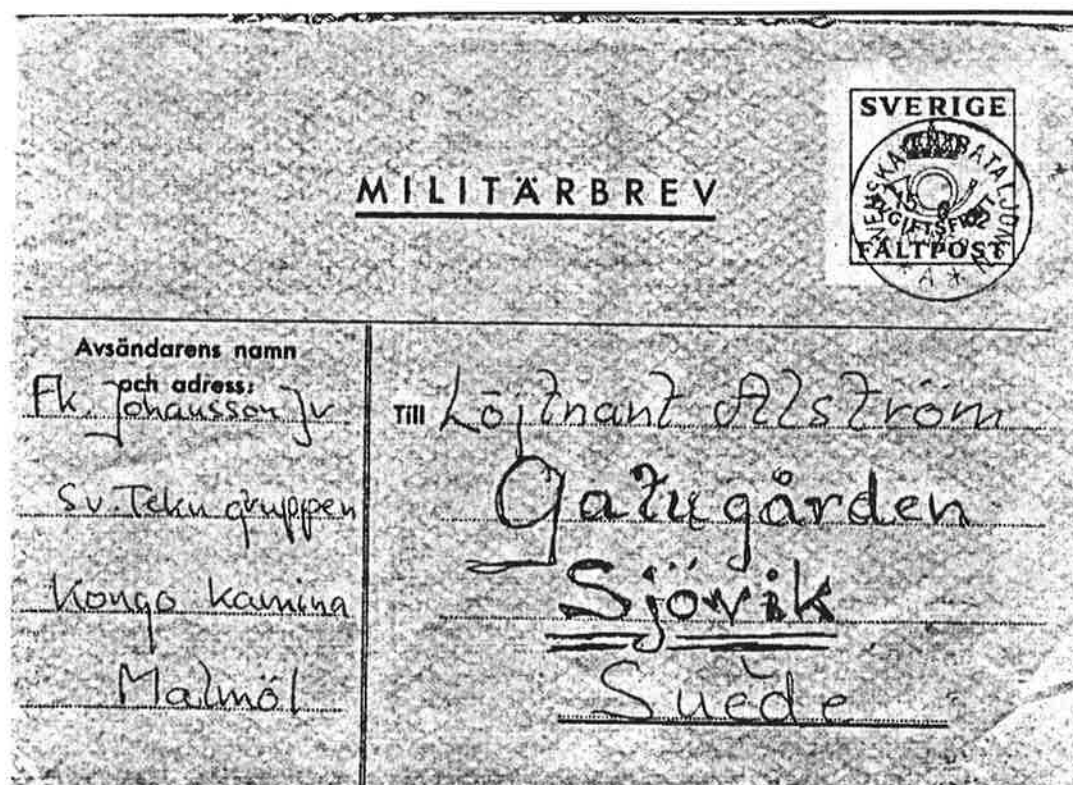 SVERIGE
SVENSKA BATALJONEN
AVGIFTSFRITT
FÄLTPOST
* A *
MILITÄRBREV
Avsändarens namn
och adress:
Fk. Johansson Jv
Sv. Tekn gruppen
Kongo Kamina
Malmö1
Till Löjtnant Alström
Gatugården
Sjövik
Suède